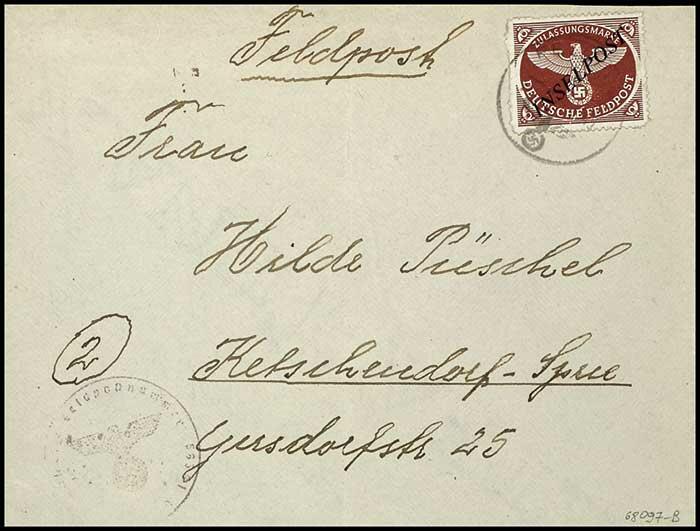 Feldpost
ZULASSUNGSMARKE
INSELPOST
DEUTSCHE FELDPOST
Frau
Hilde Püschel
2
Ketschendorf-Spree
Gersdorfstr 25
Feldpostnummer
68097-B